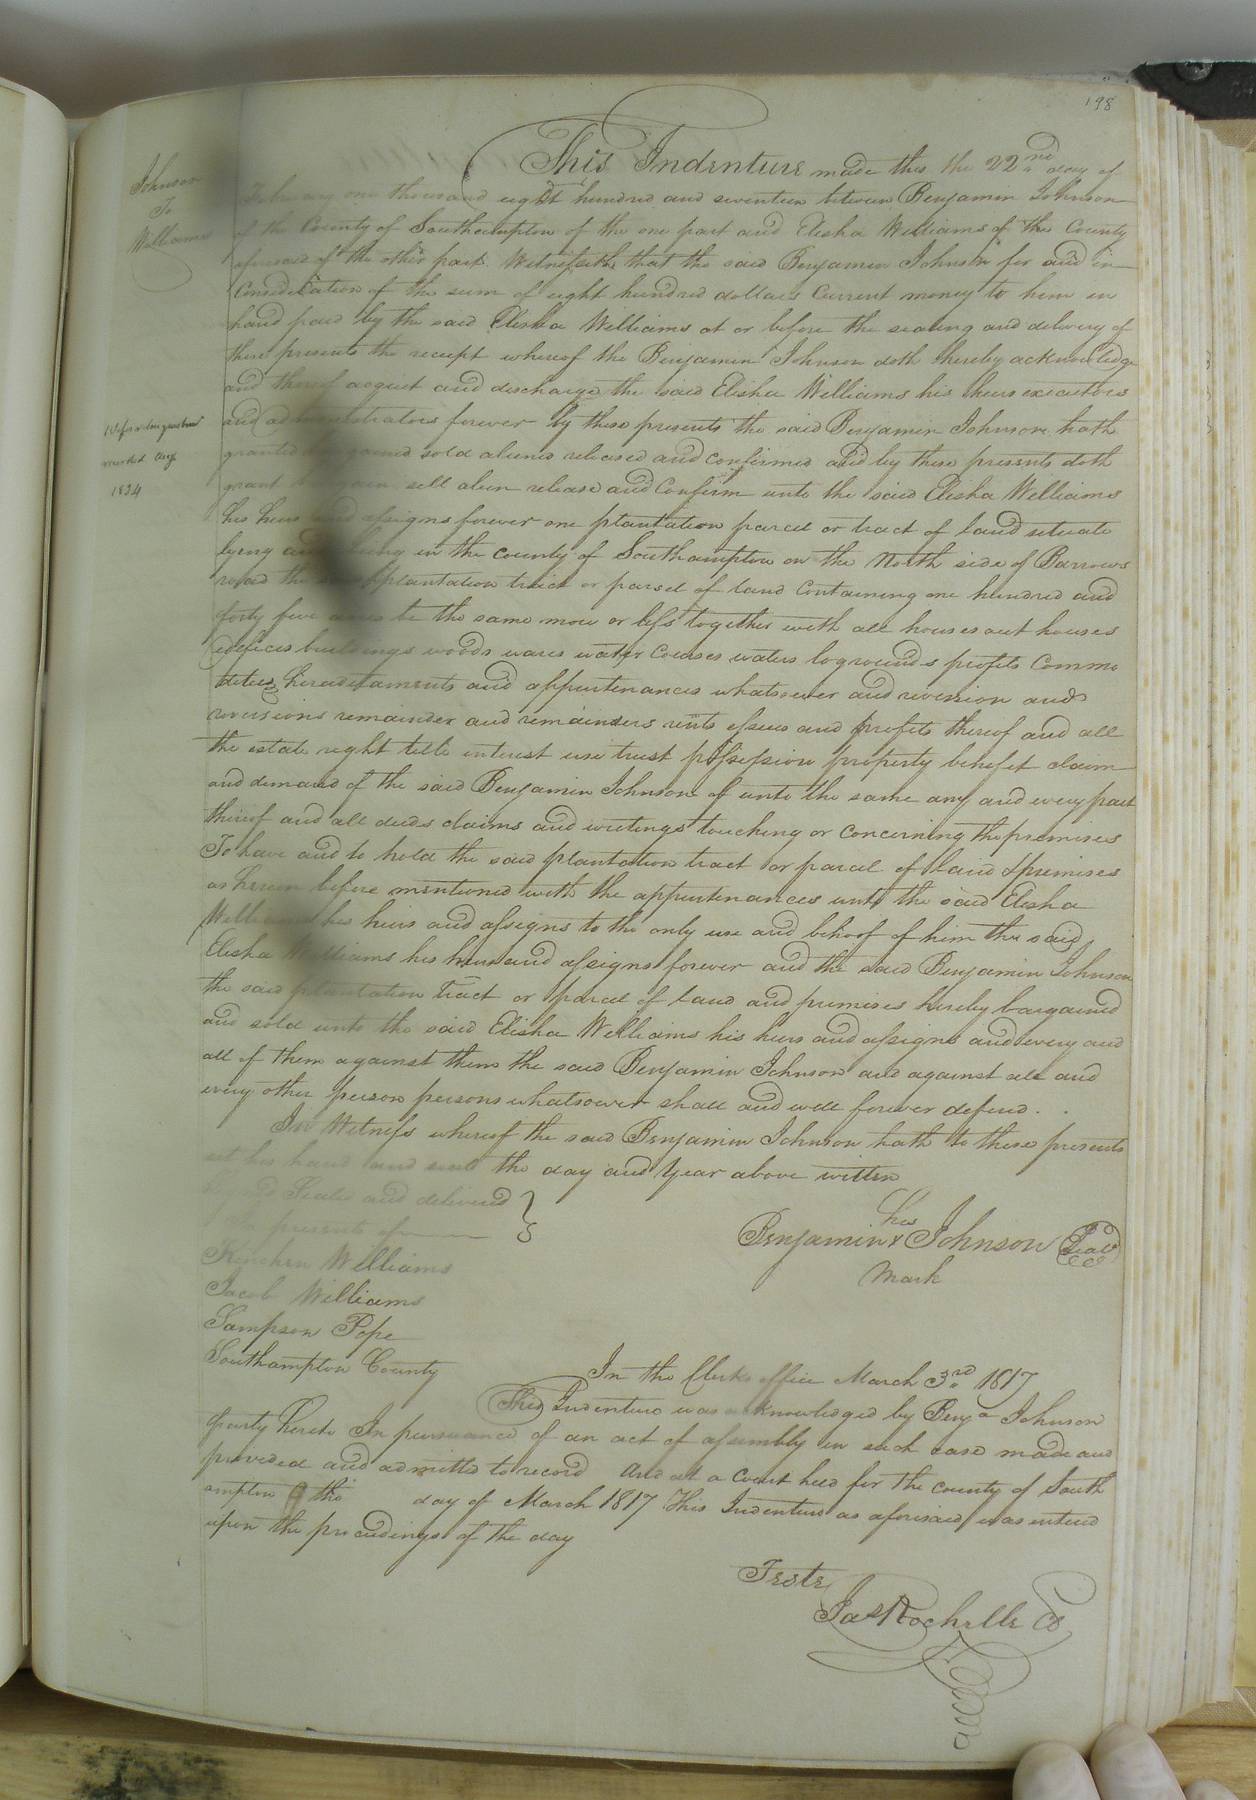 198
Johnson
To
Williams
This Indenture made this the 22nd day of
February one thousand eight hundred and seventeen between Benjamin Johnson
of the County of Southampton of the one part and Elisha Williams of the County
aforesaid of the other part Witnesseth that the said Benjamin Johnson for and in
Consideration of the sum of eight hundred dollars Current money to him in
hand paid by the said Elisha Williams at or before the sealing and delivery of
these presents the receipt whereof the Benjamin Johnson doth hereby acknowledge
and thereof acquit and discharge the said Elisha Williams his heirs executors
and administrators forever by these presents the said Benjamin Johnson hath
granted bargained sold aliened released and confirmed and by these presents doth
grant bargain sell alien release and Confirm unto the said Elisha Williams
his heirs and assigns forever one plantation parcel or tract of land situate
lying and being in the county of Southampton on the North side of Barrows
road the said plantation tract or parsel of land Containing one hundred and
forty five acres be the same more or less together with all houses out houses
edifices buildings woods wares water Courses waters logrounds profits Commo
dities hereditaments and appurtenances whatsoever and revession and
reversions remainder and remainders rents essues and profits thereof and all
the estate right title interest use trust possession property benefit claim
and demand of the said Benjamin Johnson of unto the same any and every part
thereof and all deeds claims and writings touching or concerning the premises
To have and to hold the said plantation tract or parcel of land & premises
as herein before mentioned with the appurtenances unto the said Elisha
Williams his heirs and assigns to the only use and behoof of him the said
Elisha Williams his heirs and assigns forever and the said Benjamin Johnson
the said plantation tract or parcel of land and premises hereby bargained
and sold unto the said Elisha Williams his heirs and assigns and every and
all of them against them the said Benjamin Johnson and against all and
every other person persons whatsoever shall and will forever defend.
In Witness whereof the said Benjamin Johnson hath to these presents
set his hand and seal the day and year above written
Signed Sealed and delivered
In presents of
his
Benjamin x Johnson Seal
mark
Kinchen Williams
Jacob Williams
Sampson Pope
Southampton County
In the Clerks office March 3rd 1817
This Indenture was acknowledged by Benja Johnson
party hereto In pursuance of an act of assembly in such case made and
provided and admitted to record And at a Court held for the county of South
ampton the day of March 1817 This Indenture as aforesaid was entered
upon the proceedings of the day
Teste
Jas Rochelle Cl
1834